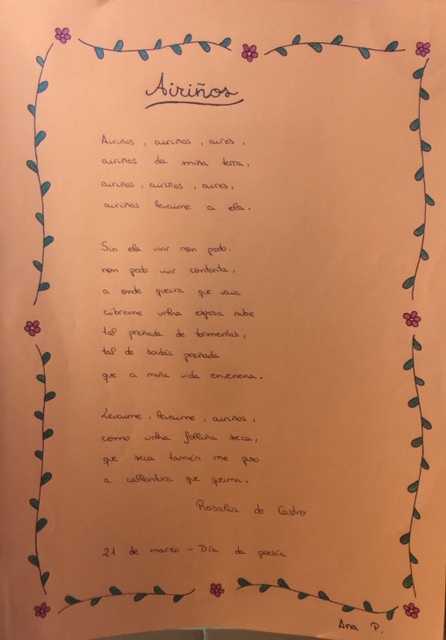 Airiños
Airiños, airiños, aires,
airiños da miña terra,
airiños, airiños, aires,
airiños levaime a ela.
Sin ela vivir non podo,
non podo vivir contenta,
a onde queira que vaia
cúbreme unha espesa nube
tal preñada de tormentas,
tal de soidás preñada
que a miña vida envenena.
Levaime, levaime, airiños,
como unha folliña seca,
que seca tamén me puxo
a callentura que queima.
Rosalía de Castro
21 de marzo - Día da poesía
Ana P.